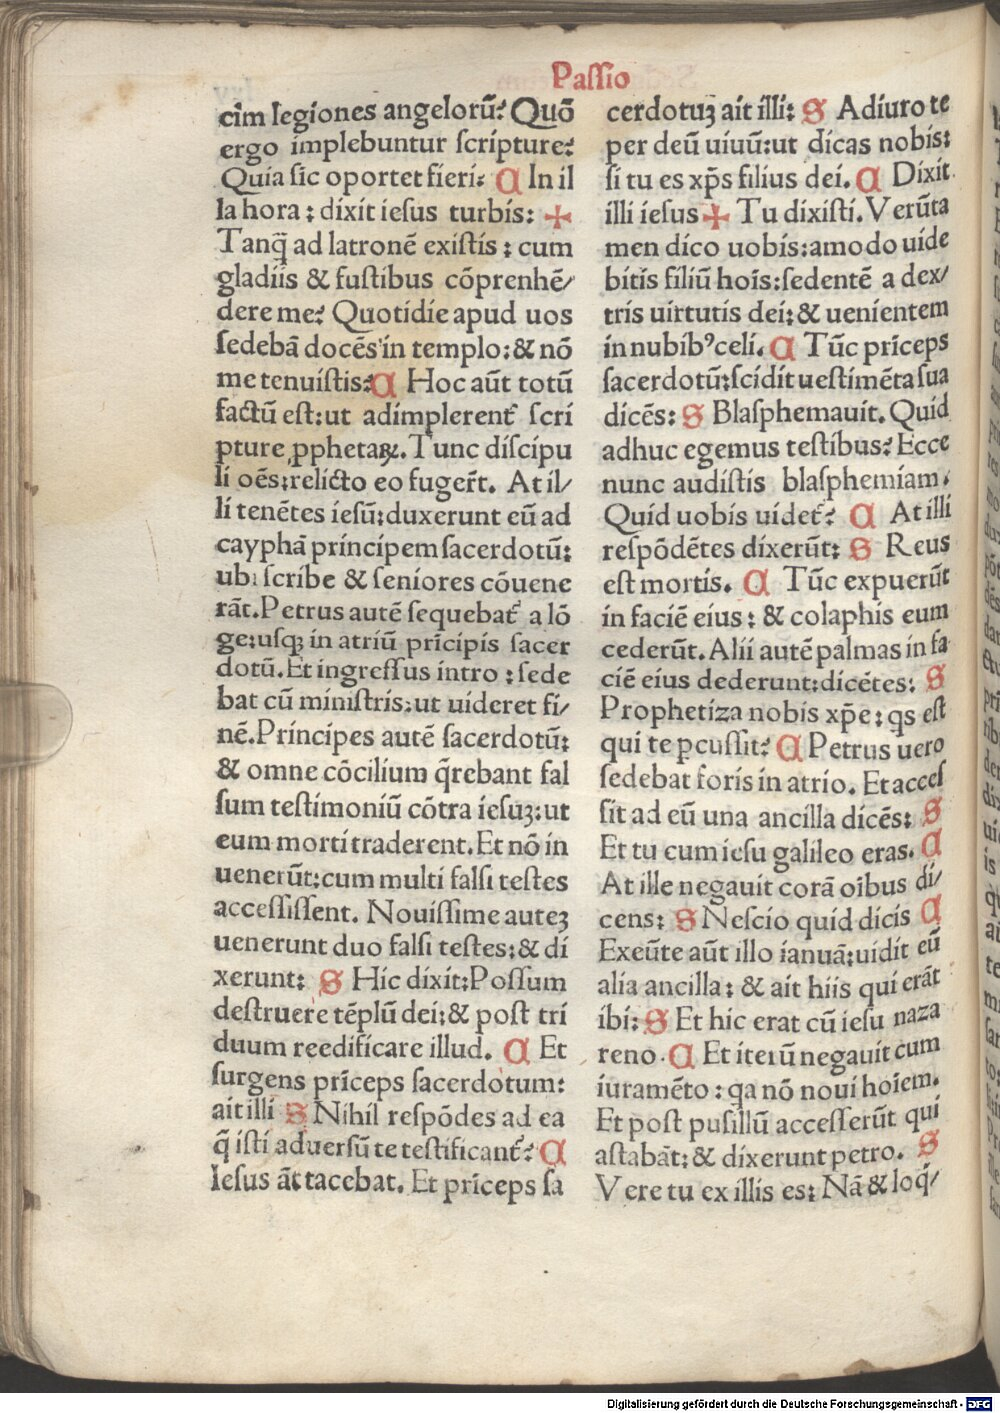 Passio
cim legiones angelorū? Quō
ergo implebuntur scripture?
Quia sic oportet fieri. C In il
la hora : dixit iesus turbis: ✢
Tanq̄ ad latronē existis : cum
gladiis & fustibus cōprenhē/
dere me? Quotidie apud uos
sedebā docēs in templo: & nō
me tenuistis: C Hoc aūt totū
factū est: ut adimplerent᷑ scri
pture ꝓphetaꝝ. Tunc discipu
li oēs: relicto eo fuger̄t. At il/
li tenētes iesū: duxerunt eū ad
cayphā principem sacerdotū:
ubi scribe & seniores cōuene
rāt. Petrus autē sequebat᷑ a lō
ge: usqꝫ in atriū prīcipis sacer
dotū. Et ingressus intro : sede
bat cū ministris: ut uideret fi/
nē. Principes autē sacerdotū:
& omne cōcilium q̄rebant fal
sum testimoniū cōtra iesuꝫ: ut
eum morti traderent. Et nō in
uenerūt: cum multi falsi testes
accessissent. Nouissime auteꝫ
uenerunt duo falsi testes: & di
xerunt: S Hic dixit: Possum
destruere tēplū dei: & post tri
duum reedificare illud. C Et
surgens prīceps sacerdotum:
ait illi S Nihil respōdes ad ea
q̄ isti aduersū te testificant᷑? C
Iesus āt tacebat. Et prīceps sa
cerdotuꝫ ait illi: S Adiuro te
per deū uiuū: ut dicas nobis:
si tu es xp̄s filius dei. C Dixit
illi iesus ✢ Tu dixisti. Verūta
men dico uobis: amodo uide
bitis filiū hoīs: sedentē a dex/
tris uirtutis dei: & uenientem
in nubibꝰ celi. C Tūc prīceps
sacerdotū: scidit uestimēta sua
dicēs: S Blasphemauit. Quid
adhuc egemus testibus? Ecce
nunc audistis blasphemiam.
Quid uobis uidet᷑? C At illi
respōdētes dixerūt: S Reus
est mortis. C Tūc expuerūt
in faciē eius : & colaphis eum
cederūt. Alii autē palmas in fa
ciē eius dederunt: dicētes: S
Prophetiza nobis xp̄e : q̄s est
qui te ꝑcussit? C Petrus uero
sedebat foris in atrio. Et acces
sit ad eū una ancilla dicēs: S
Et tu cum iesu galileo eras. C
At ille negauit corā oībus di/
cens: S Nescio quid dicis C
Exeūte aūt illo ianuā: uidit eū
alia ancilla : & ait hiis qui erāt
ibi: S Et hic erat cū iesu naza
reno. C Et iterū negauit cum
iuramēto : qa nō noui hoīem.
Et post pusillū accesserūt qui
astabāt: & dixerunt petro. S
Vere tu ex illis es: Nā & loq̄/
Digitalisierung gefördert durch die Deutsche Forschungsgemeinschaft - DFG